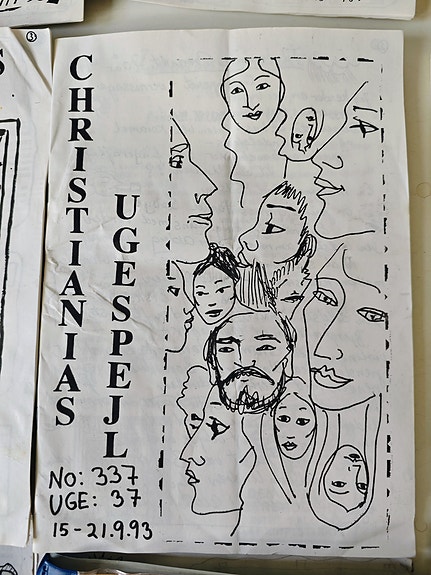 CHRISTIANIAS
UGESPEJL
NO: 337
UGE: 37
15-21.9.93
3